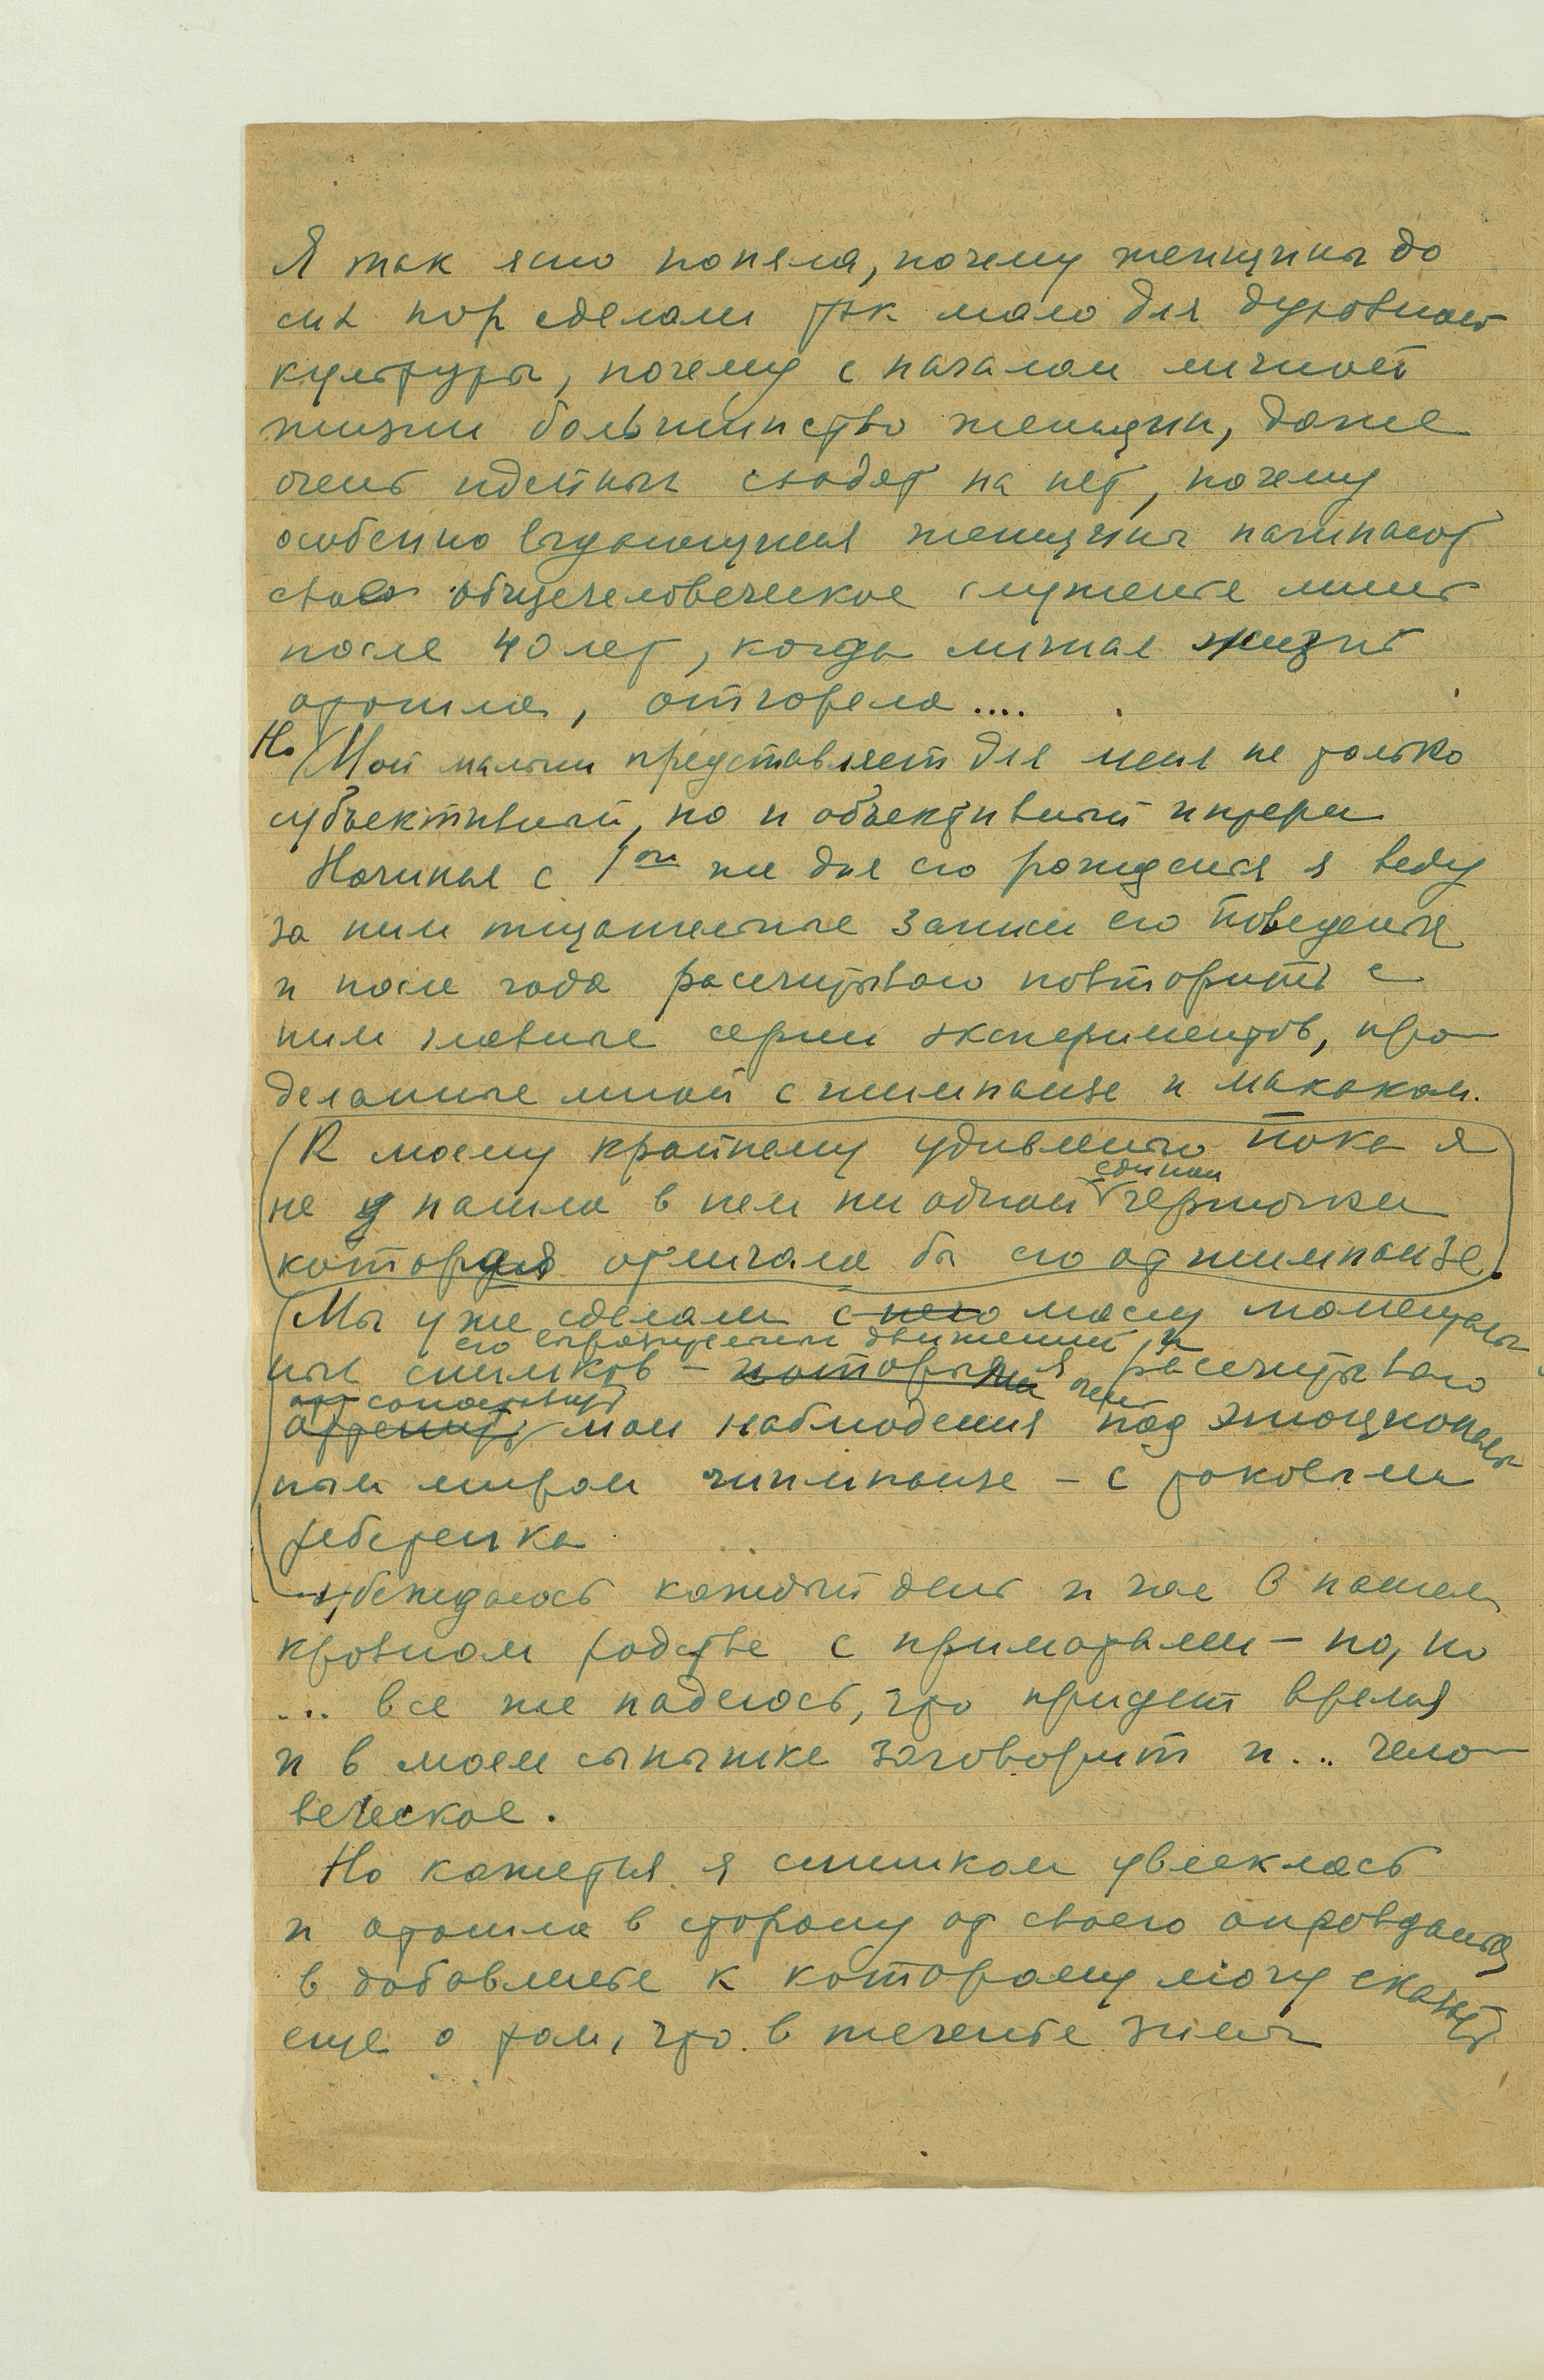 Я так ясно поняла, почему женщины до
сих пор сделали так мало для духовной
культуры, почему с началом личной
жизни большинство женщин, даже
очень идейных сходят на нет, почему
особенно выдающиеся женщины начинают
свое общечеловеческое служение лишь
после 40 лет, когда личная жизнь
отошла, отгорела ....
Но (Мой малыш представляет для меня не только
субъективный, но и объективный интерес
Начиная с 1ого же дня его рождения я веду
за ним тщательные записи его поведения
и после года рассчитываю повторить с
ним главные серии экспериментов, про-
деланные мной с шимпанзе и макаком.
(К моему крайнему удивлению пока я
не нашла в нем ни одной единой черточки
которая отличала бы его от шимпанзе.)
(Мы уже сделали с него массу моменталь-
его выразительных движений и
ных снимков – которыми я рассчитываю
сопоставить
оттенить мои наблюдения над эмоциональ-
ным миром шимпанзе – с таковыми
ребенка
убеждаюсь каждый день и час в нашем
кровном родстве с приматами – но, но
... все же надеюсь, что придет время
и в моем сынишке заговорит и... чело-
веческое.
Но кажется я слишком увлеклась
и отошла в сторону от своего оправдания
в добавление к которому могу сказать
еще о том, что в течение зимы